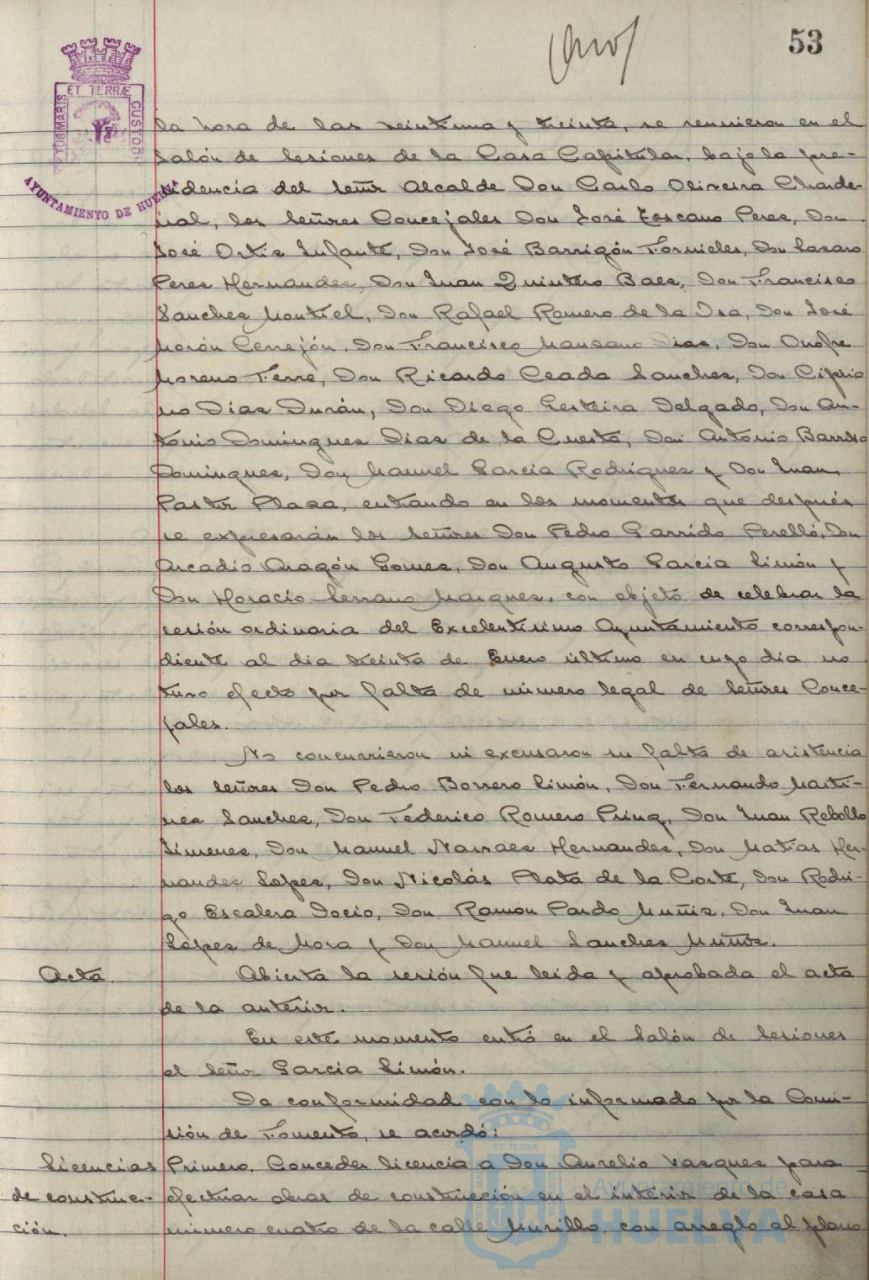 53
ET TERRÆ
PORTUS MARIS
CUSTODIA
AYUNTAMIENTO DE HUELVA
la hora de las veintiuna y treinta, se reunieron en el
Salón de Sesiones de la Casa Capitular, bajo la pre-
sidencia del Señor Alcalde Don Carlo Oliveira Charde-
nal, los Señores Concejales Don José Toscano Peres, Don
José Ortis Infante, Don José Barrigón Fornieles, Don Lasaro
Peres Hernandes, Don Juan Quintero Baes, Don Francisco
Sanches Montiel, Don Rafael Romero de la Osa, Don José
Morón Cerrejón, Don Francisco Mansano Dias, Don Onofre
Moreno Ferre, Don Ricardo Ceada Sanches, Don Cipria
no Dias Durán, Don Diego Lesteira Delgado, Don An-
tonio Domingues Dias de la Cuesta, Don Antonio Barroso
Domingues, Don Manuel Garcia Rodrigues y Don Juan
Pastor Plasa, entrando en los momentos que después
se expresarán los Señores Don Pedro Garrido Perelló, Don
Arcadio Aragón Gomes, Don Augusto Garcia Simón y
Don Horacio Serrano Marques, con objeto de celebrar la
sesión ordinaria del Excelentisimo Ayuntamiento correspon-
diente al dia treinta de Enero último en cuyo dia no
tuvo efecto por falta de número legal de Señores Conce-
jales.
No concurrieron ni excusaron su falta de asistencia
los Señores Don Pedro Borrero Simón, Don Fernando Marti-
nes Sanches, Don Federico Romero Prinq, Don Juan Rebollo
Jimenes, Don Manuel Narvaes Hernandes, Don Matías Her-
nandes Lopes, Don Nicolás Plata de la Corte, Don Rodri-
go Escalera Docio, Don Ramón Pardo Muñis, Don Juan
Lopes de Mora y Don Manuel Sanches Muñis.
Acta. Abierta la sesión fue leida y aprobada el acta
de la anterior.
En este momento entró en el Salón de Sesiones
el Señor Garcia Simón.
Da conformidad con lo informado por la Comi-
sión de Fomento, se acordó:
Licencias Primero. Conceder licencia a Don Aurelio Vasques para
de construc- efectuar obras de construcción en el interior de la casa
ción. número cuatro de la calle Murillo, con arreglo al plano
Ayuntamiento de
HUELVA